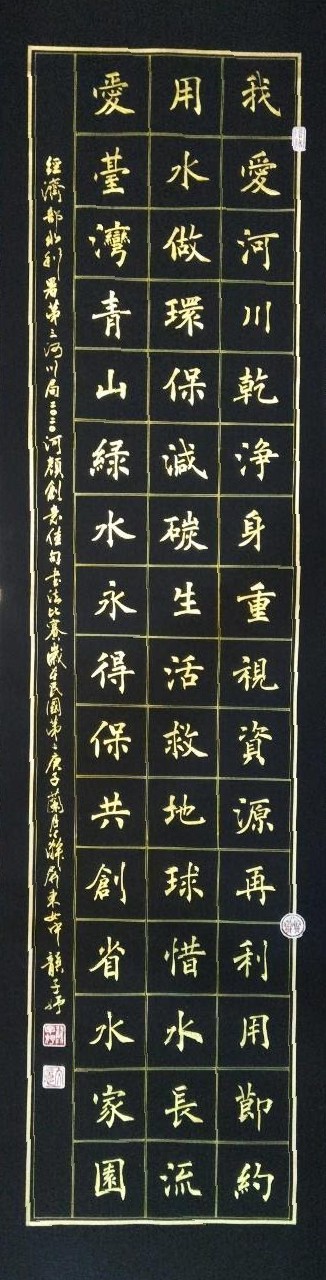 我愛河川乾淨身重視資源再利用節約
用水做環保減碳生活救地球惜水長流
愛臺灣青山綠水永得保共創省水家園
經濟部水利署第三河川局二〇二〇河顏創意佳句書法比賽歲在民國第二庚子蘭月 屏東女中 韻